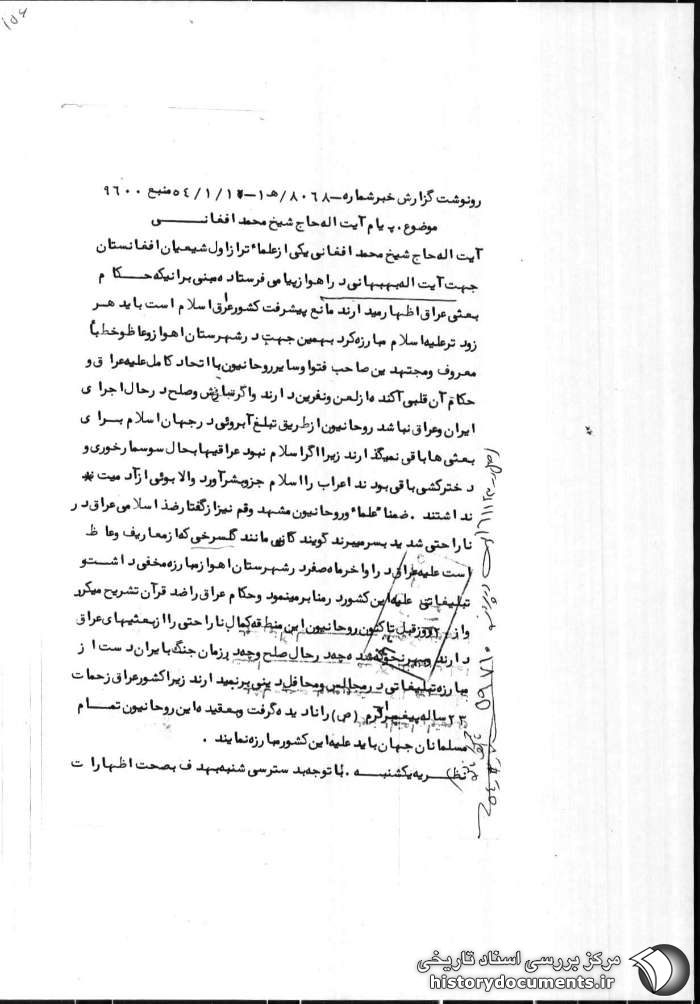 ۱۵۶
رونوشت گزارش خبرشماره-۸۰۶۸/هـ۱-۵۴/۱/۱۲ منبع ۹۶۰۰
موضوع. پیام آیت اله حاج شیخ محمد افغانی
آیت اله حاج شیخ محمد افغانی یکی از علماء تراز اول شیعیان افغانستان
جهت آیت اله بهبهانی در اهواز پیامی فرستاده مبنی برانیکه حکام
بعثی عراق اظهار میدارند مانع پیشرفت کشور عراق اسلام است باید هر
زود تر علیه اسلام مبارزه کرد بهمین جهت در شهرستان اهواز وعاظ و خطبا
معروف ومجتهدین صاحب فتوا وسایر روحانیون با اتحاد کامل علیه عراق و
حکام آن قلبی آکنده از لعن و نفرین دارند واگر سازش وصلح در حال اجرای
ایران وعراق نباشد روحانیون از طریق تبلیغ آبروئی در جهان اسلام برای
بعثی ها باقی نمیگذارند زیرا اگر اسلام نبود عراقیها بحال سوسمار خوری و
دختر کشی باقی بودند اعراب را اسلام جزو بشر آورد والا بوئی از آدمیت
نداشتند. ضمنا" علماء وروحانیون مشهد وقم نیز از گفتار ضد اسلامی عراق در
ناراحتی شدید بسر میبرند گویند کانی مانند گلسرخی که از معاریف وعاظ
است علیه عراق در اواخر ماه صفر در شهرستان اهواز مبارزه مخفی داشت و
تبلیغاتی علیه این کشور در منابر مینمود وحکام عراق را ضد قرآن تشریح میکرد
واز ۲۰ روز قبل تاکنون روحانیون این منطقه کمال ناراحتی را از بعثیهای عراق
دارند وبهر نحو که شده چه در حال صلح وچه در زمان جنگ با ایران دست از
مبارزه تبلیغاتی در مجالس ومحافل دینی بر نمیدارند زیرا کشور عراق زحمات
۲۳ ساله پیغمبر اکرم (ص) را نادیده گرفت وبعقیده این روحانیون تمام
مسلمانان جهان باید علیه این کشور مبارزه نمایند .
نظریه یکشنبه . با توجه بدسترسی شنبه بهدف بصحت اظهارات
مرکز بررسی اسناد تاریخی
historydocuments.ir